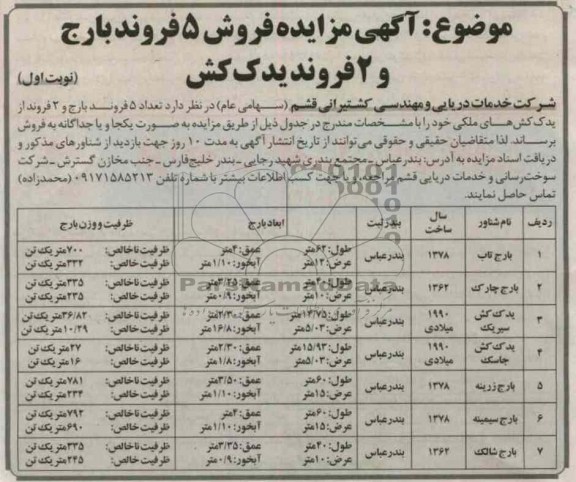 موضوع: آگهی مزایده فروش ۵ فروند بارج
و ۲ فروند یدک کش
(نوبت اول)
شرکت خدمات دریایی و مهندسی کشتیرانی قشم (سهامی عام) در نظر دارد تعداد ۵ فروند بارج و ۲ فروند از
یدک کش‌های ملکی خود را با مشخصات مندرج در جدول ذیل از طریق مزایده به صورت یکجا و یا جداگانه به فروش
برساند. لذا متقاضیان حقیقی و حقوقی می‌توانند از تاریخ انتشار آگهی به مدت ۱۰ روز جهت بازدید از شناورهای مذکور و
دریافت اسناد مزایده به آدرس: بندرعباس ـ مجتمع بندری شهید رجایی ـ بندر خلیج فارس ـ جنب مخازن گسترش ـ شرکت
سوخت رسانی و خدمات دریایی قشم مراجعه و یا جهت کسب اطلاعات بیشتر با شماره تلفن ۰۹۱۷۱۵۸۵۲۱۳ (محمدزاده)
تماس حاصل نمایند.
ردیف نام شناور سال ساخت بندر ثبت ابعاد بارج ظرفیت و وزن بارج
۱ بارج تاب ۱۳۷۸ بندرعباس طول: ۶۲متر عمق: ۴متر ظرفیت ناخالص: ۷۰۰متریک تن
عرض: ۱۲متر آبخور: ۱/۱۰متر ظرفیت خالص: ۳۳۲متریک تن
۲ بارج چارک ۱۳۶۲ بندرعباس طول: ۴۰متر عمق: ۳/۲۵متر ظرفیت ناخالص: ۳۳۵متریک تن
عرض: ۱۰متر آبخور: ۰/۹متر ظرفیت خالص: ۲۳۵متریک تن
۳ یدک کش سیریک ۱۹۹۰ میلادی بندرعباس طول: ۱۴/۷۵متر عمق: ۲/۳۰متر ظرفیت ناخالص: ۳۶/۸۲متریک تن
عرض: ۵/۰۳متر آبخور: ۱۶/۸متر ظرفیت خالص: ۱۰/۲۹متریک تن
۴ یدک کش جاسک ۱۹۹۰ میلادی بندرعباس طول: ۱۵/۹۳متر عمق: ۲/۳۰متر ظرفیت ناخالص: ۲۷متریک تن
عرض: ۵/۰۳متر آبخور: ۱/۸متر ظرفیت خالص: ۱۶متریک تن
۵ بارج زرینه ۱۳۷۸ بندرعباس طول: ۶۰متر عمق: ۳/۵۰متر ظرفیت ناخالص: ۷۸۱متریک تن
عرض: ۱۵متر آبخور: ۱/۱۰متر ظرفیت خالص: ۲۳۴متریک تن
۶ بارج سیمینه ۱۳۷۸ بندرعباس طول: ۶۰متر عمق: ۴متر ظرفیت ناخالص: ۷۹۲متریک تن
عرض: ۱۵متر آبخور: ۱/۱۰متر ظرفیت خالص: ۶۹۰متریک تن
۷ بارج شالک ۱۳۶۲ بندرعباس طول: ۴۰متر عمق: ۳/۲۵متر ظرفیت ناخالص: ۳۳۵متریک تن
عرض: ۱۰متر آبخور: ۰/۹متر ظرفیت خالص: ۲۴۵متریک تن